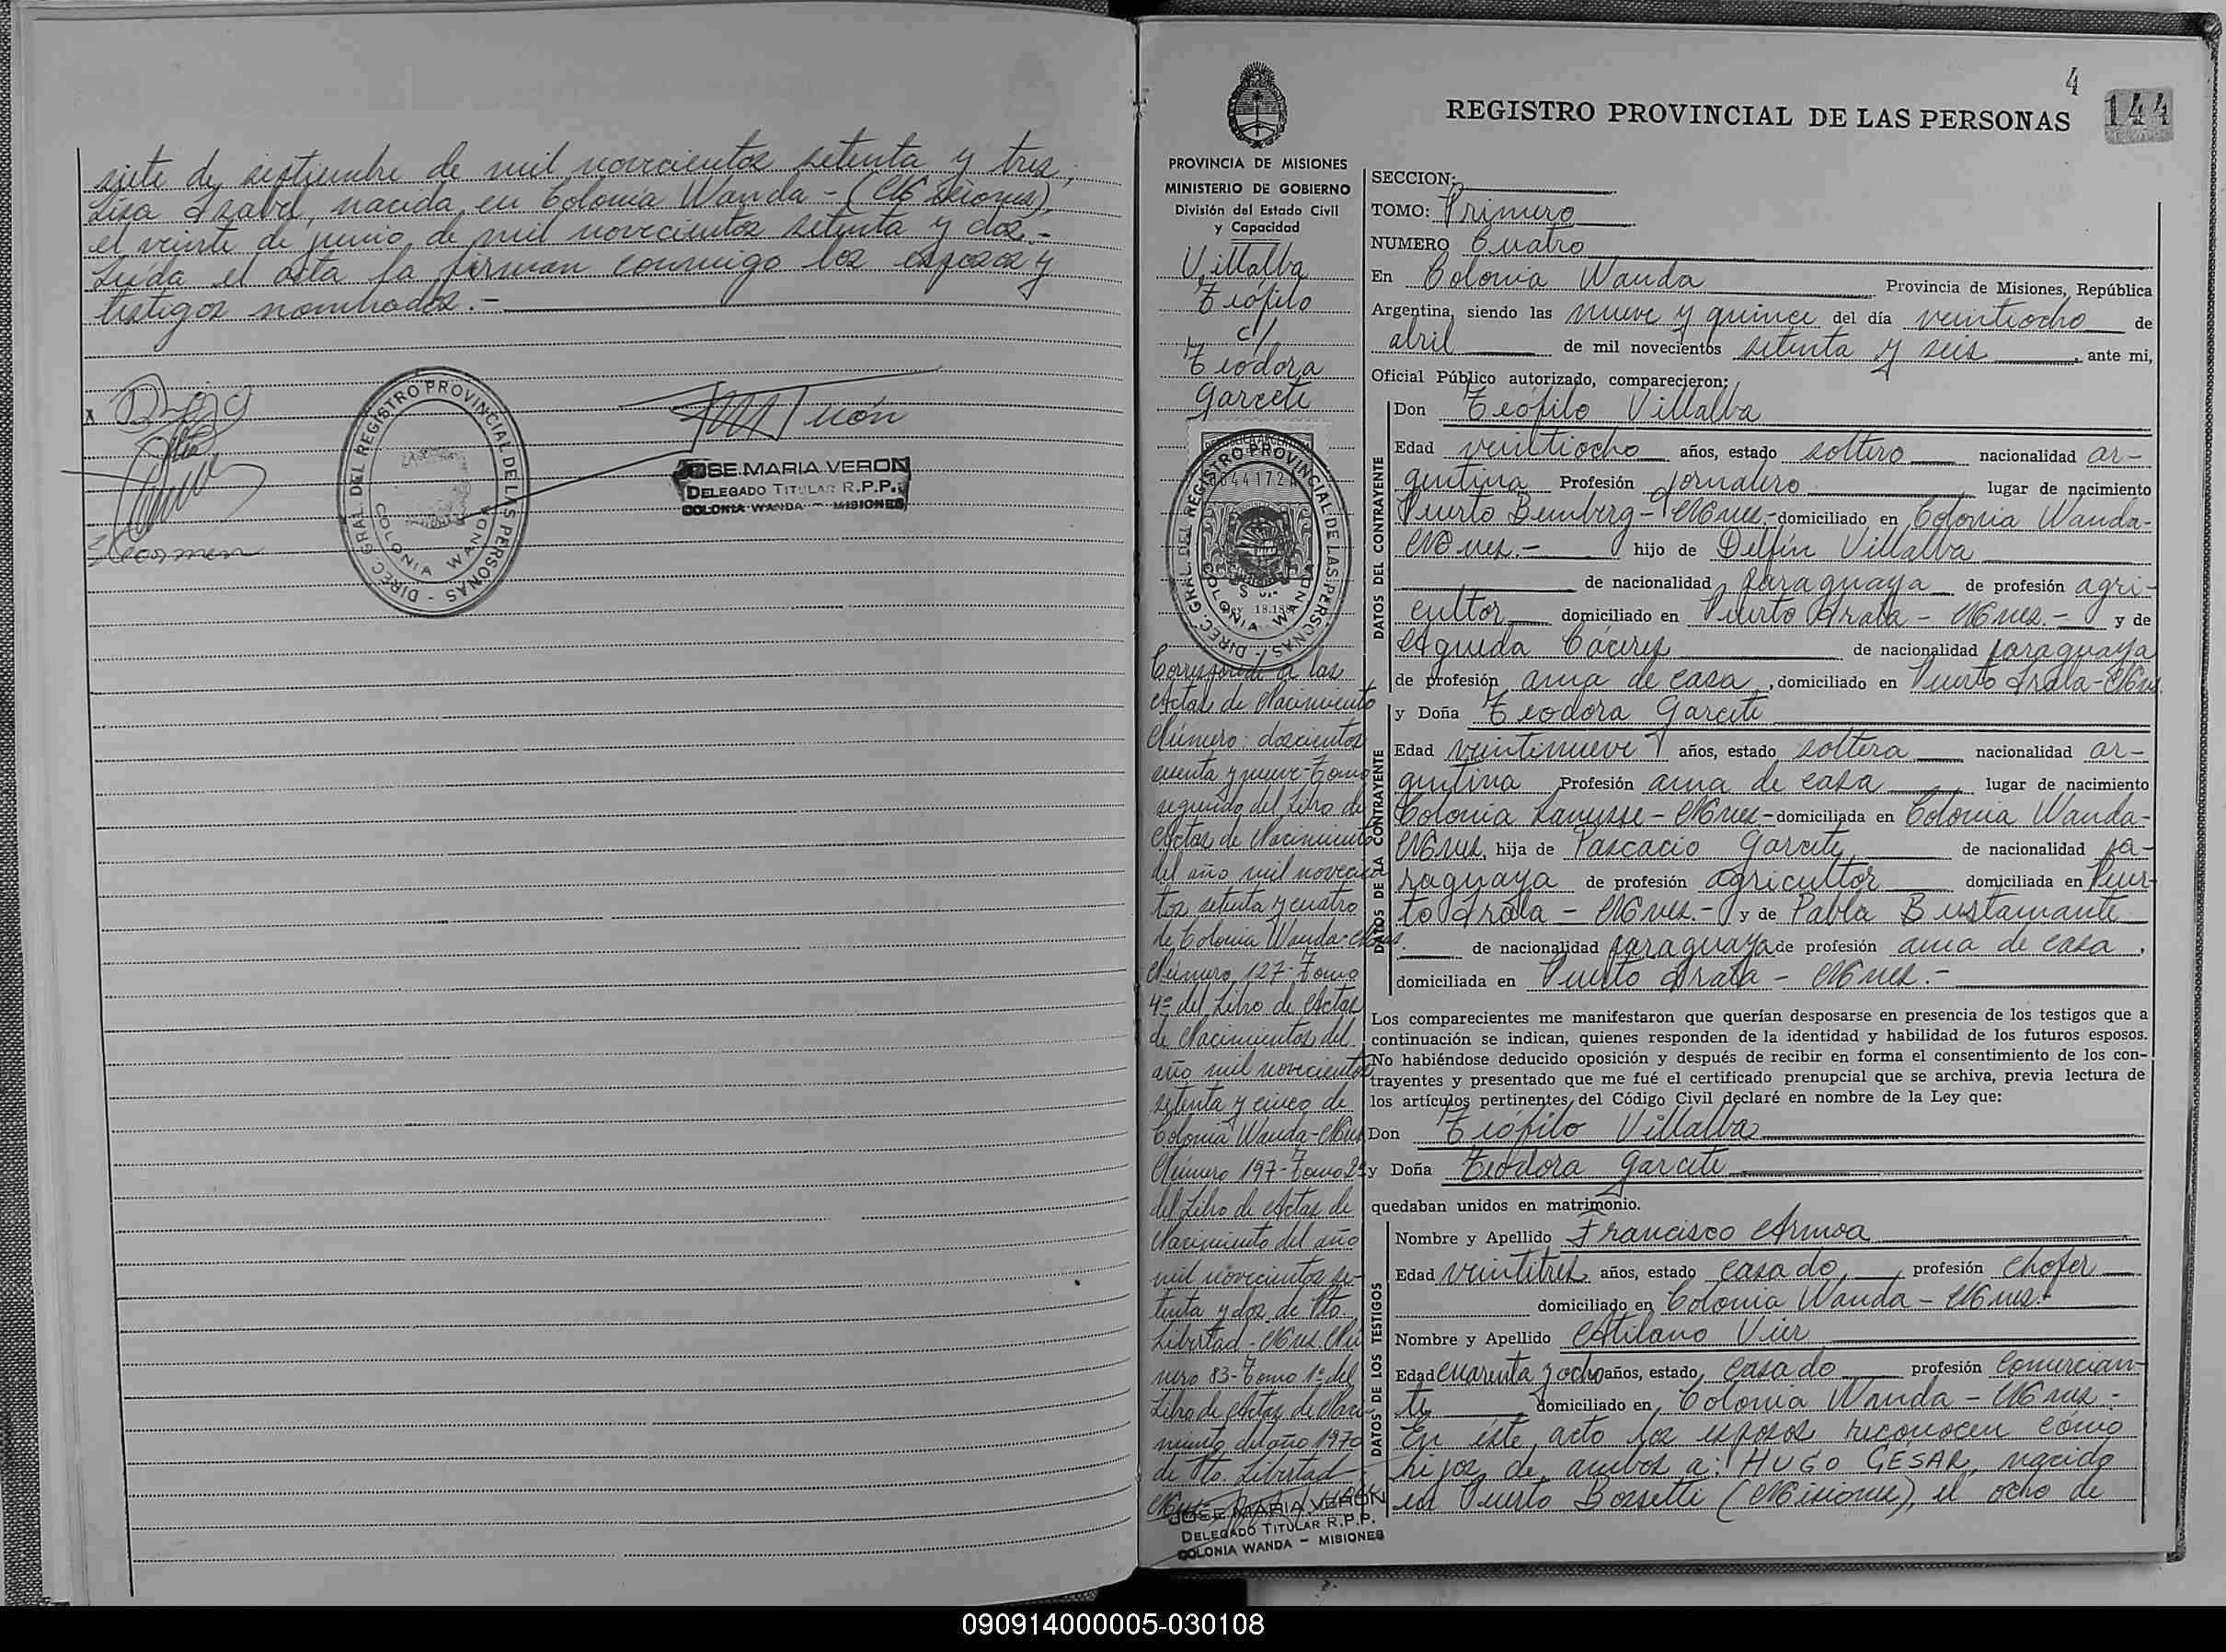 siete de septiembre de mil novecientos setenta y tres;
Lisa Isabel, nacida en Colonia Wanda - (Misiones),
el veinte de junio de mil novecientos setenta y dos.-
Leída el acta la firman conmigo los esposos y
testigos nombrados.-
JOSE MARIA VERON
DELEGADO TITULAR R.P.P.
COLONIA WANDA - MISIONES
DIREC. GRAL. DEL REGISTRO PROVINCIAL DE LAS PERSONAS -
COLONIA WANDA
4
144
REGISTRO PROVINCIAL DE LAS PERSONAS
PROVINCIA DE MISIONES
MINISTERIO DE GOBIERNO
División del Estado Civil
y Capacidad
Villalba
Teófilo
c/
Teodora
Garcete
DIREC. GRAL. DEL REGISTRO PROVINCIAL DE LAS PERSONAS -
COLONIA WANDA
Corresponde a las
Actas de Nacimiento
Número: doscientos
cuenta y nueve-Tomo
segundo del Libro de
Actas de Nacimiento
del año mil novecien
tos setenta y cuatro
de Colonia Wanda-Mnes.
Número 127-Tomo
4º del Libro de Actas
de Nacimientos del
año mil novecientos
setenta y cinco de
Colonia Wanda-Mnes
Número 197-Tomo 2º
del Libro de Actas de
Nacimiento del año
mil novecientos se-
tenta y dos de Pto.
Libertad-Mnes. Nú
mero 83-Tomo 1º del
Libro de Actas de Naci-
miento del año 1970
de Pto. Libertad
JOSE MARIA VERON
DELEGADO TITULAR R.P.P.
COLONIA WANDA - MISIONES
SECCION:
TOMO: Primero
NUMERO Cuatro
En Colonia Wanda Provincia de Misiones, República
Argentina, siendo las nueve y quince del día veintiocho de
abril de mil novecientos setenta y seis, ante mi,
Oficial Público autorizado, comparecieron:
DATOS DEL CONTRAYENTE
Don Teófilo Villalba
Edad veintiocho años, estado soltero nacionalidad ar-
gentina Profesión jornalero lugar de nacimiento
Puerto Bemberg-Mnes.-domiciliado en Colonia Wanda-
Mnes.- hijo de Delfín Villalba
de nacionalidad paraguaya de profesión agri-
cultor domiciliado en Puerto Irala - Mnes.- y de
Agueda Cáceres de nacionalidad paraguaya
de profesión ama de casa, domiciliado en Puerto Irala-Mnes.
DATOS DE LA CONTRAYENTE
y Doña Teodora Garcete
Edad veintinueve años, estado soltera nacionalidad ar-
gentina Profesión ama de casa lugar de nacimiento
Colonia Lanusse-Mnes-domiciliada en Colonia Wanda-
Mnes. hija de Pascacio Garcete de nacionalidad pa-
raguaya de profesión agricultor domiciliada en Puer-
to Irala - Mnes.- y de Pabla Bustamante
de nacionalidad paraguaya de profesión ama de casa,
domiciliada en Puerto Irala - Mnes.-
Los comparecientes me manifestaron que querían desposarse en presencia de los testigos que a
continuación se indican, quienes responden de la identidad y habilidad de los futuros esposos.
No habiéndose deducido oposición y después de recibir en forma el consentimiento de los con-
trayentes y presentado que me fué el certificado prenupcial que se archiva, previa lectura de
los artículos pertinentes del Código Civil declaré en nombre de la Ley que:
Don Teófilo Villalba
y Doña Teodora Garcete
quedaban unidos en matrimonio.
DATOS DE LOS TESTIGOS
Nombre y Apellido Francisco Armoa
Edad veintitrés años, estado casado, profesión chofer
domiciliado en Colonia Wanda - Mnes.-
Nombre y Apellido Atilano Vier
Edad cuarenta y ocho años, estado casado profesión comercian-
te domiciliado en Colonia Wanda - Mnes.-
En éste acto los esposos reconocen como
hijos de ambos a: HUGO CESAR, nacido
en Puerto Bossetti (Misiones), el ocho de
090914000005-030108